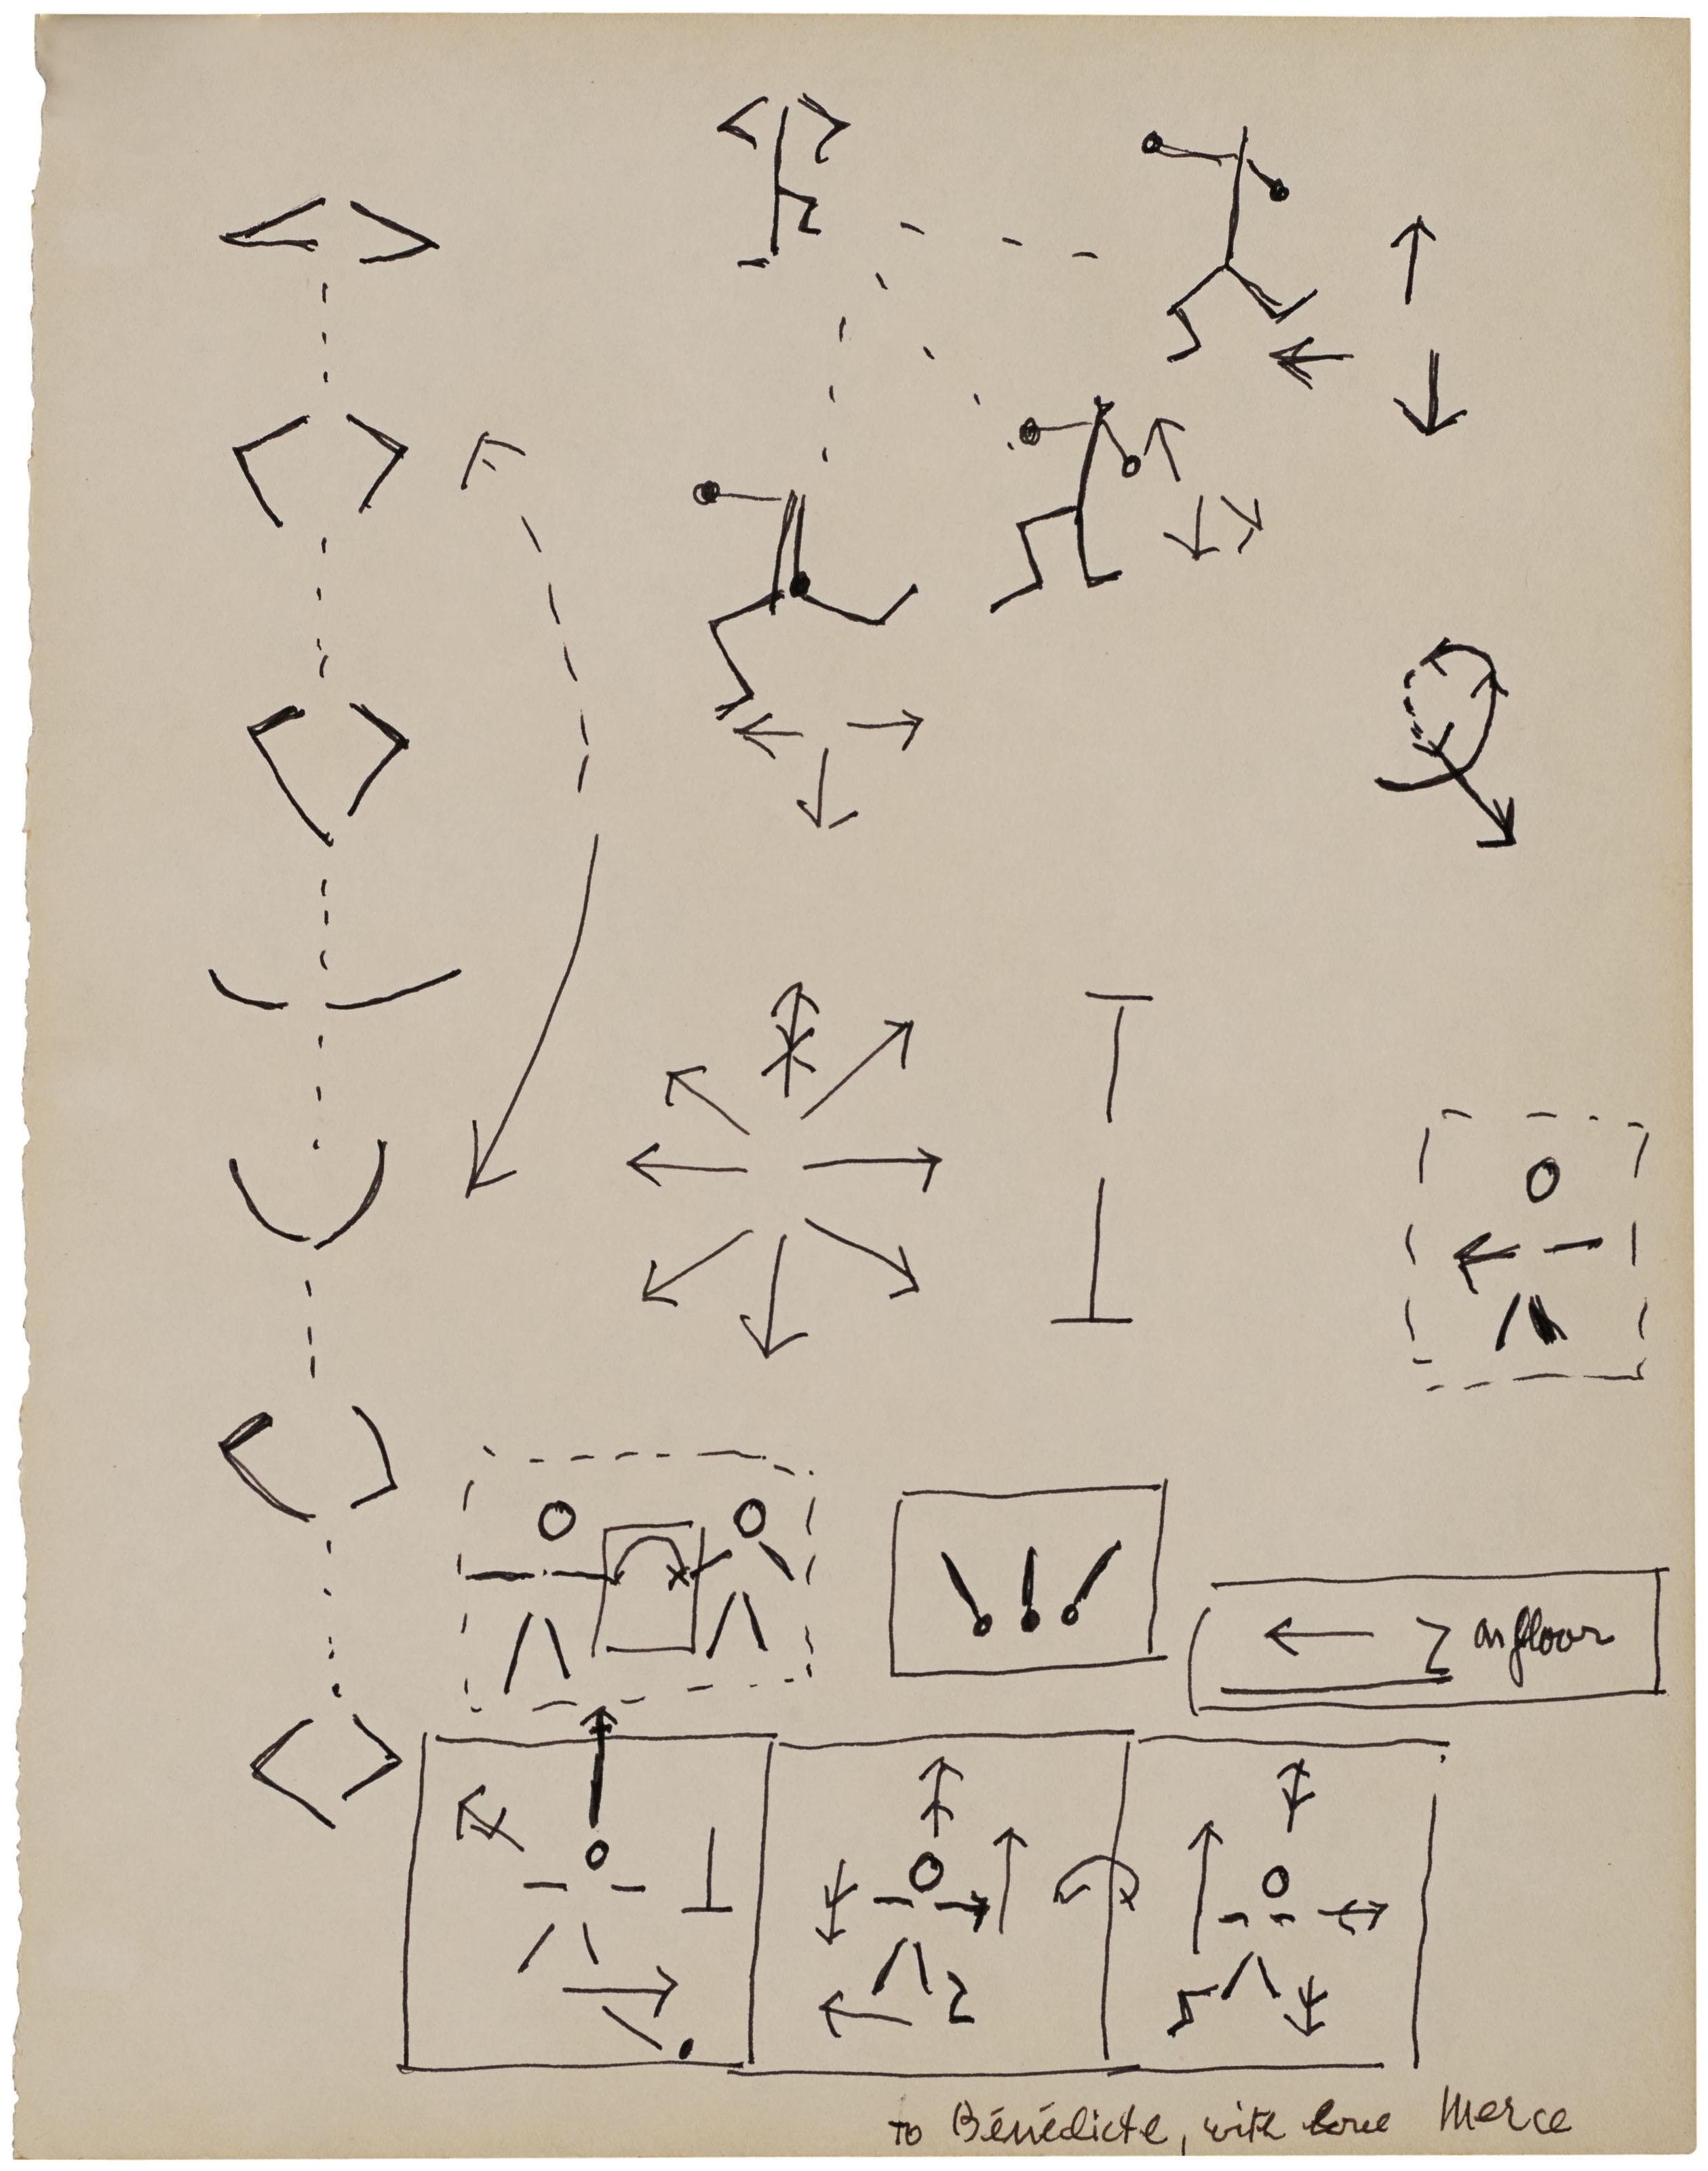 on floor
to Bénédicte, with love Merce